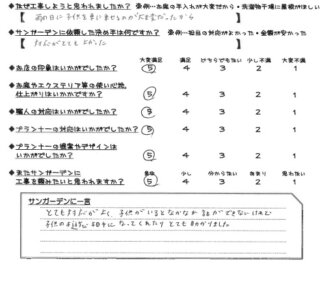 ◆なぜ工事しようと思われましたか？ 条例…お庭の手入れが大変だから・洗濯物干場に屋根がほしい
【雨の日に子供を乗り降りするのが大変だったから】
◆サンガーデンに依頼した決め手は何ですか？ 条例…担当の対応がよかった・金額が安かった
【対応がとてもよかった】
大変満足 満足 どちらでもない 少し不満 大変不満
◆お店の印象はいかがでしたか？ 5 4 3 2 1
◆お庭やエクステリア等の使い心地、
仕上がりはいかがですか？ 5 4 3 2 1
◆職人の対応はいかがでしたか？ 5 4 3 2 1
◆プランナーの対応はいかがでしたか？ 5 4 3 2 1
◆プランナーの提案やデザインは
いかがでしたか？ 5 4 3 2 1
◆またサンガーデンに 少し 分からない あまり 思わない
工事を頼みたいと思われますか？ 5 4 3 2 1
サンガーデンに一言
とても対応がよく、子供がいるとなかなか話ができないけど
子供の相手になってくれたりとても助かりました